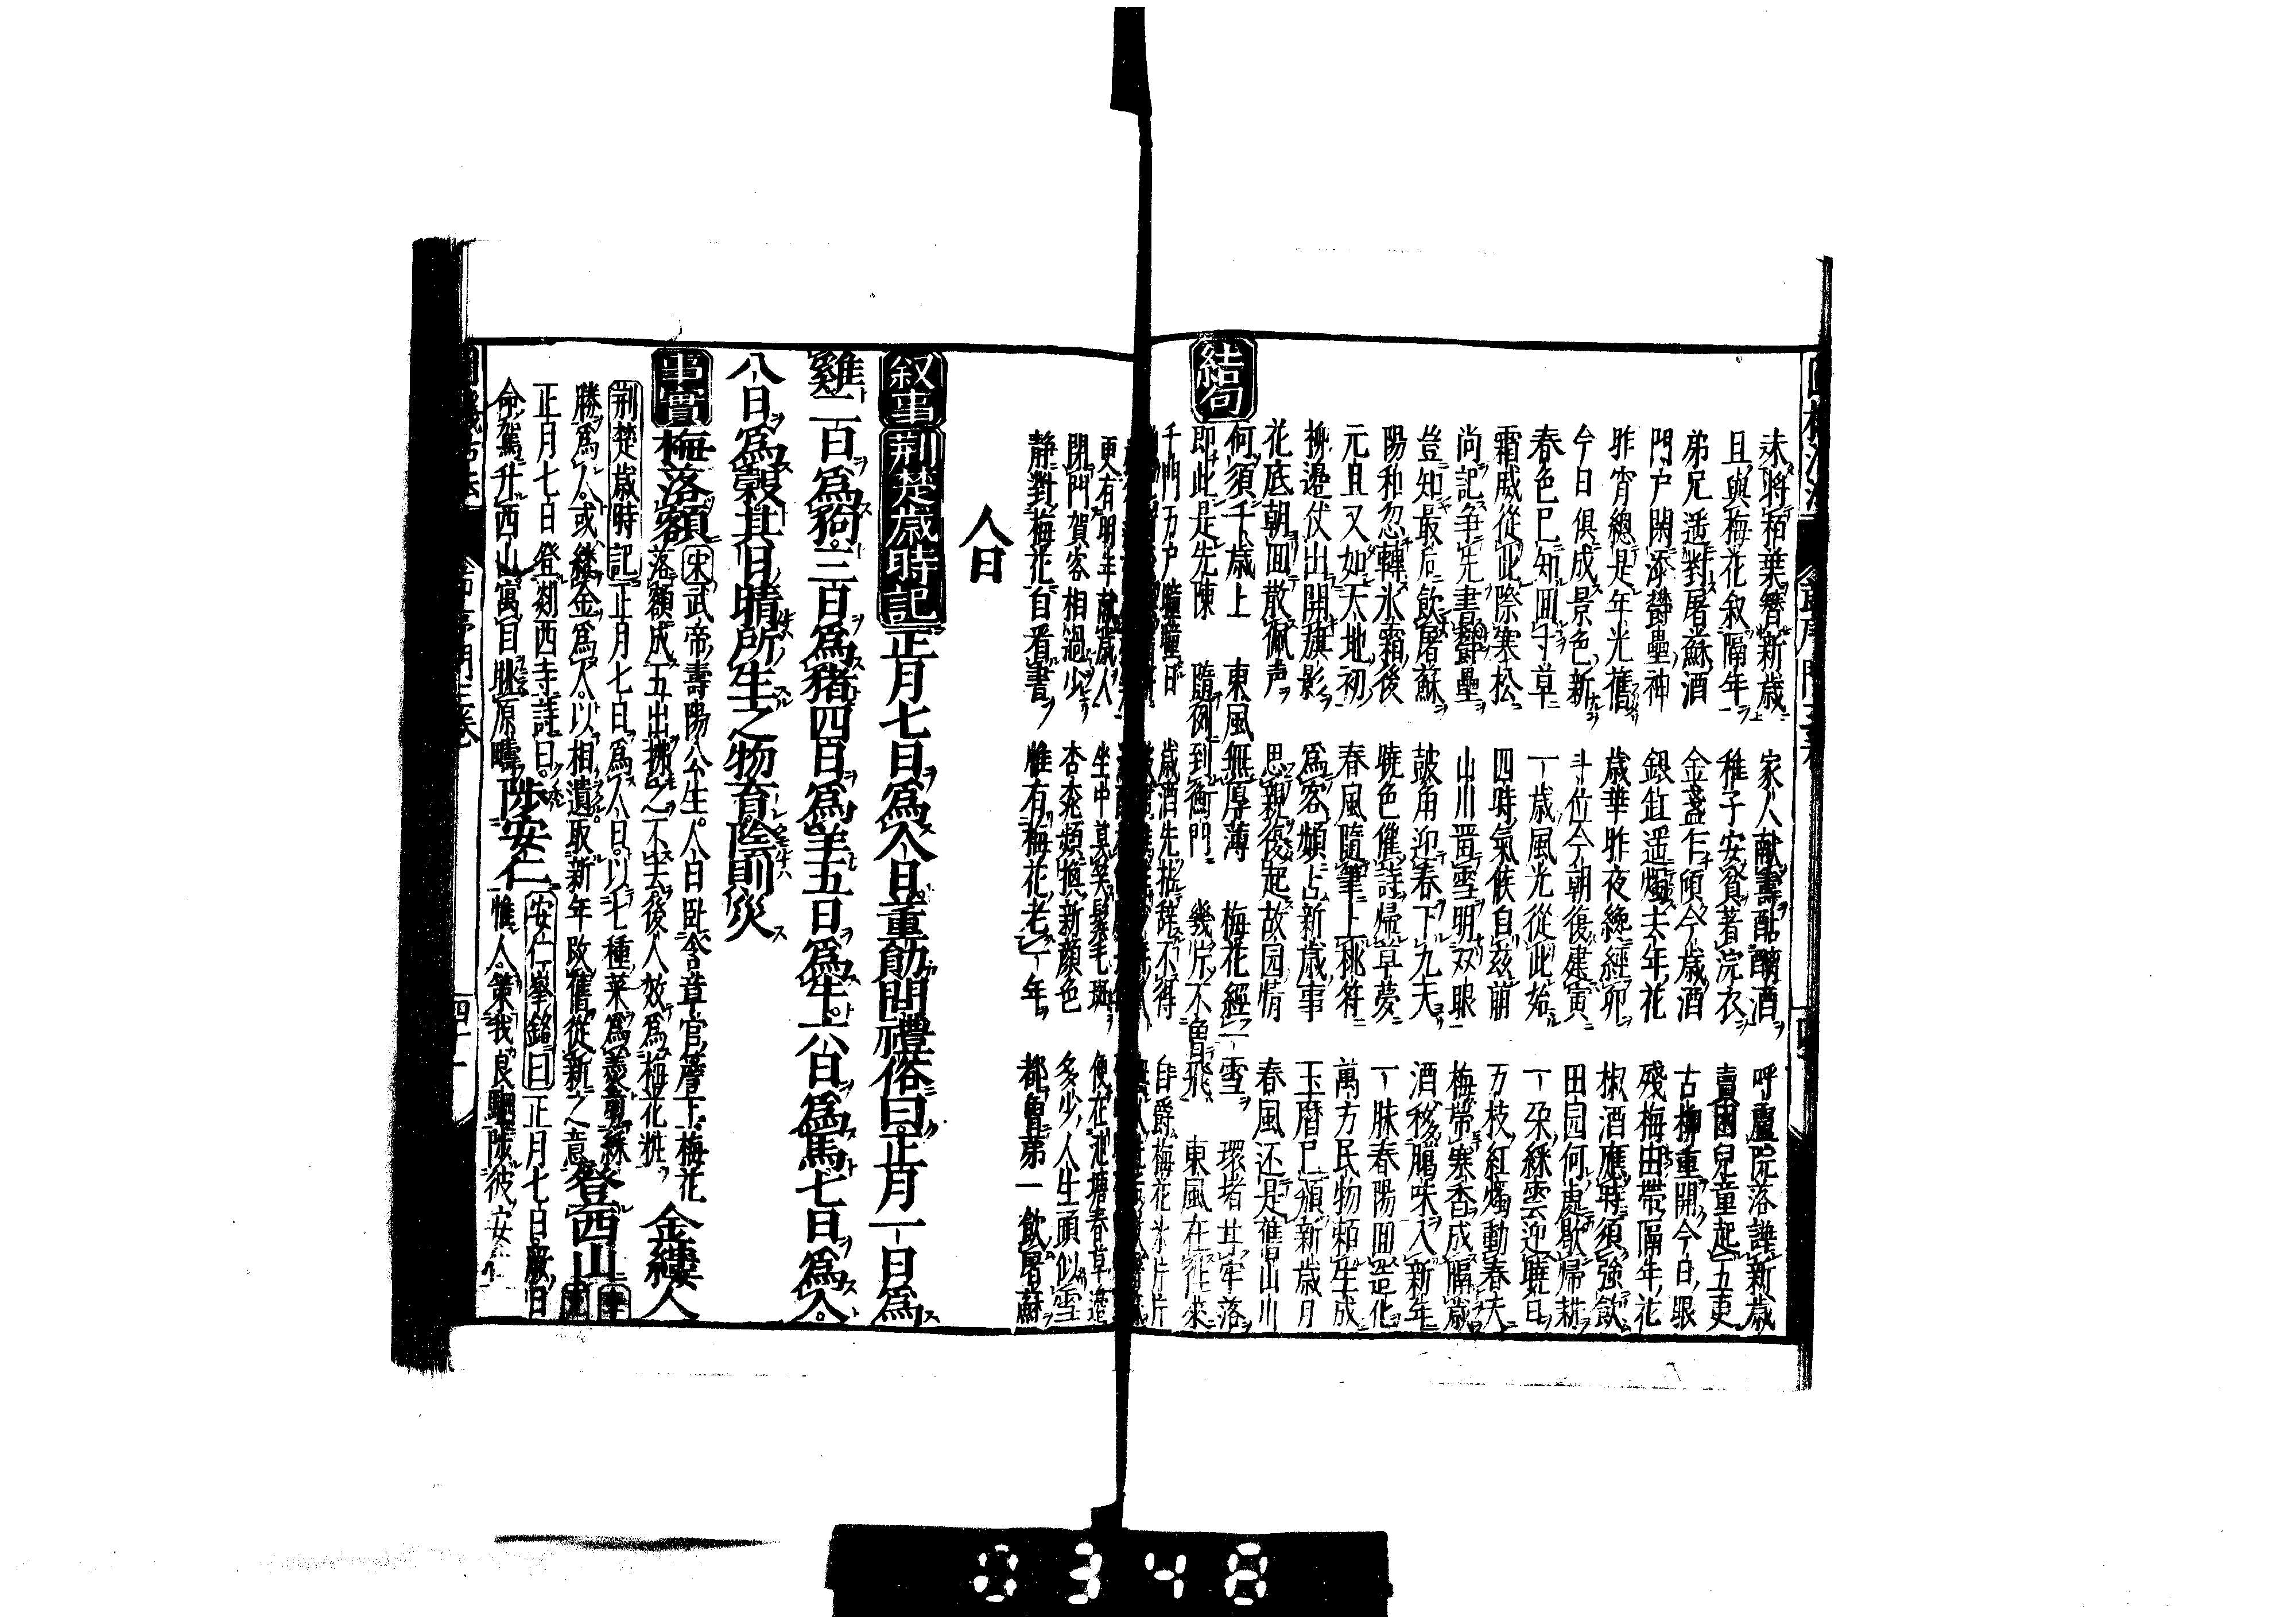 未將栢葉簪新歲 家人献壽酤醑酒 呼盧院落譁新歳
且與梅花叙隔年 稚子安貧著浣衣 賣困兒童起五更
弟兄遥對屠蘇酒 金盞乍傾今歳酒 古柳重開今日眼
門戸閑添欝壘神 銀缸遥燭去年花 殘梅由帯隔年花
昨宵總是年光舊 歳華昨夜絶經卯 椒酒應時須強飲
今日俱成景色新 斗位今朝復建寅 田园何處歇歸耕
春色已知囬寸草 一歳風光從此始 一朶綵雲迎暁日
霜威從此際寒松 四時氣候自兹崩 万枝紅燭動春天
尚記争先書欝壘 山川罝雪明双眼 梅帯寒香成隔歳
豈知最后飲屠蘇 鼓角迎春下九天 酒移臈味入新年
陽和忽轉氷霜後 暁色催詩帰草夢 一脉春陽囬造化
元旦又如天地初 春風隨筆上桃符 萬方民物頼生成
柳邉仗出開旗影 爲客頻占新歳事 玉暦已頒新歳月
花底朝囬散佩声 思親復起故园情 春風还是舊山川
結句 何須千歳上 東風無厚薄 梅花經一雪 環堵甘牢落
即此是先陳 隨例到衡門 幾片不曽飛 東風在徃來
千門万戸曈曈日 歳酒先拈辞不得 自爵梅花氷片片
更有明年献歳人 坐中莫笑鬓毛斑 便在池塘春草邉
閉門賀客相過少 杏桃頻換新顔色 多少人生頭似雪
静對梅花自看書 惟有梅花老一年 都魯第一飲屠蘇
人日
叙事 荊楚歳時記 正月七日爲人日董勛問禮俗曰正月一日爲
雞二日爲狗三日爲猪四日爲羊五日爲牛六日爲馬七日爲人
八日爲穀其日晴所生之物育陰則災
事實 梅落額 宋武帝壽陽公主人日臥含章宮簷下梅花
落額成五出拂之不去後人效爲梅花粧 金縷人
荊楚歳時記 正月七日爲人日以七種菜爲羮剪綵
勝爲人或縷金爲人以相遺取新年改舊從新之意 登西山
正月七日登剡西寺詩曰 陟安仁 安仁峯銘曰 正月七日厥日
惟人策我良駟陟彼安仁
命駕升西山寓目眺原疇
四十一
0348